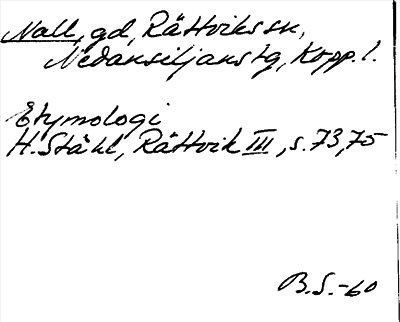 Nall, gd, Rättviks sn,
Nedansiljans tg, Kopp. l.
Etymologi
H. Ståhl, Rättvik III, s. 73, 75
B.S.-60